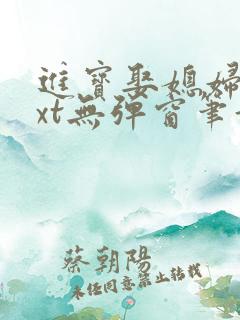 進寶娶媳婦
xt無彈窗筆
蔡朝陽
未經同意禁止轉載